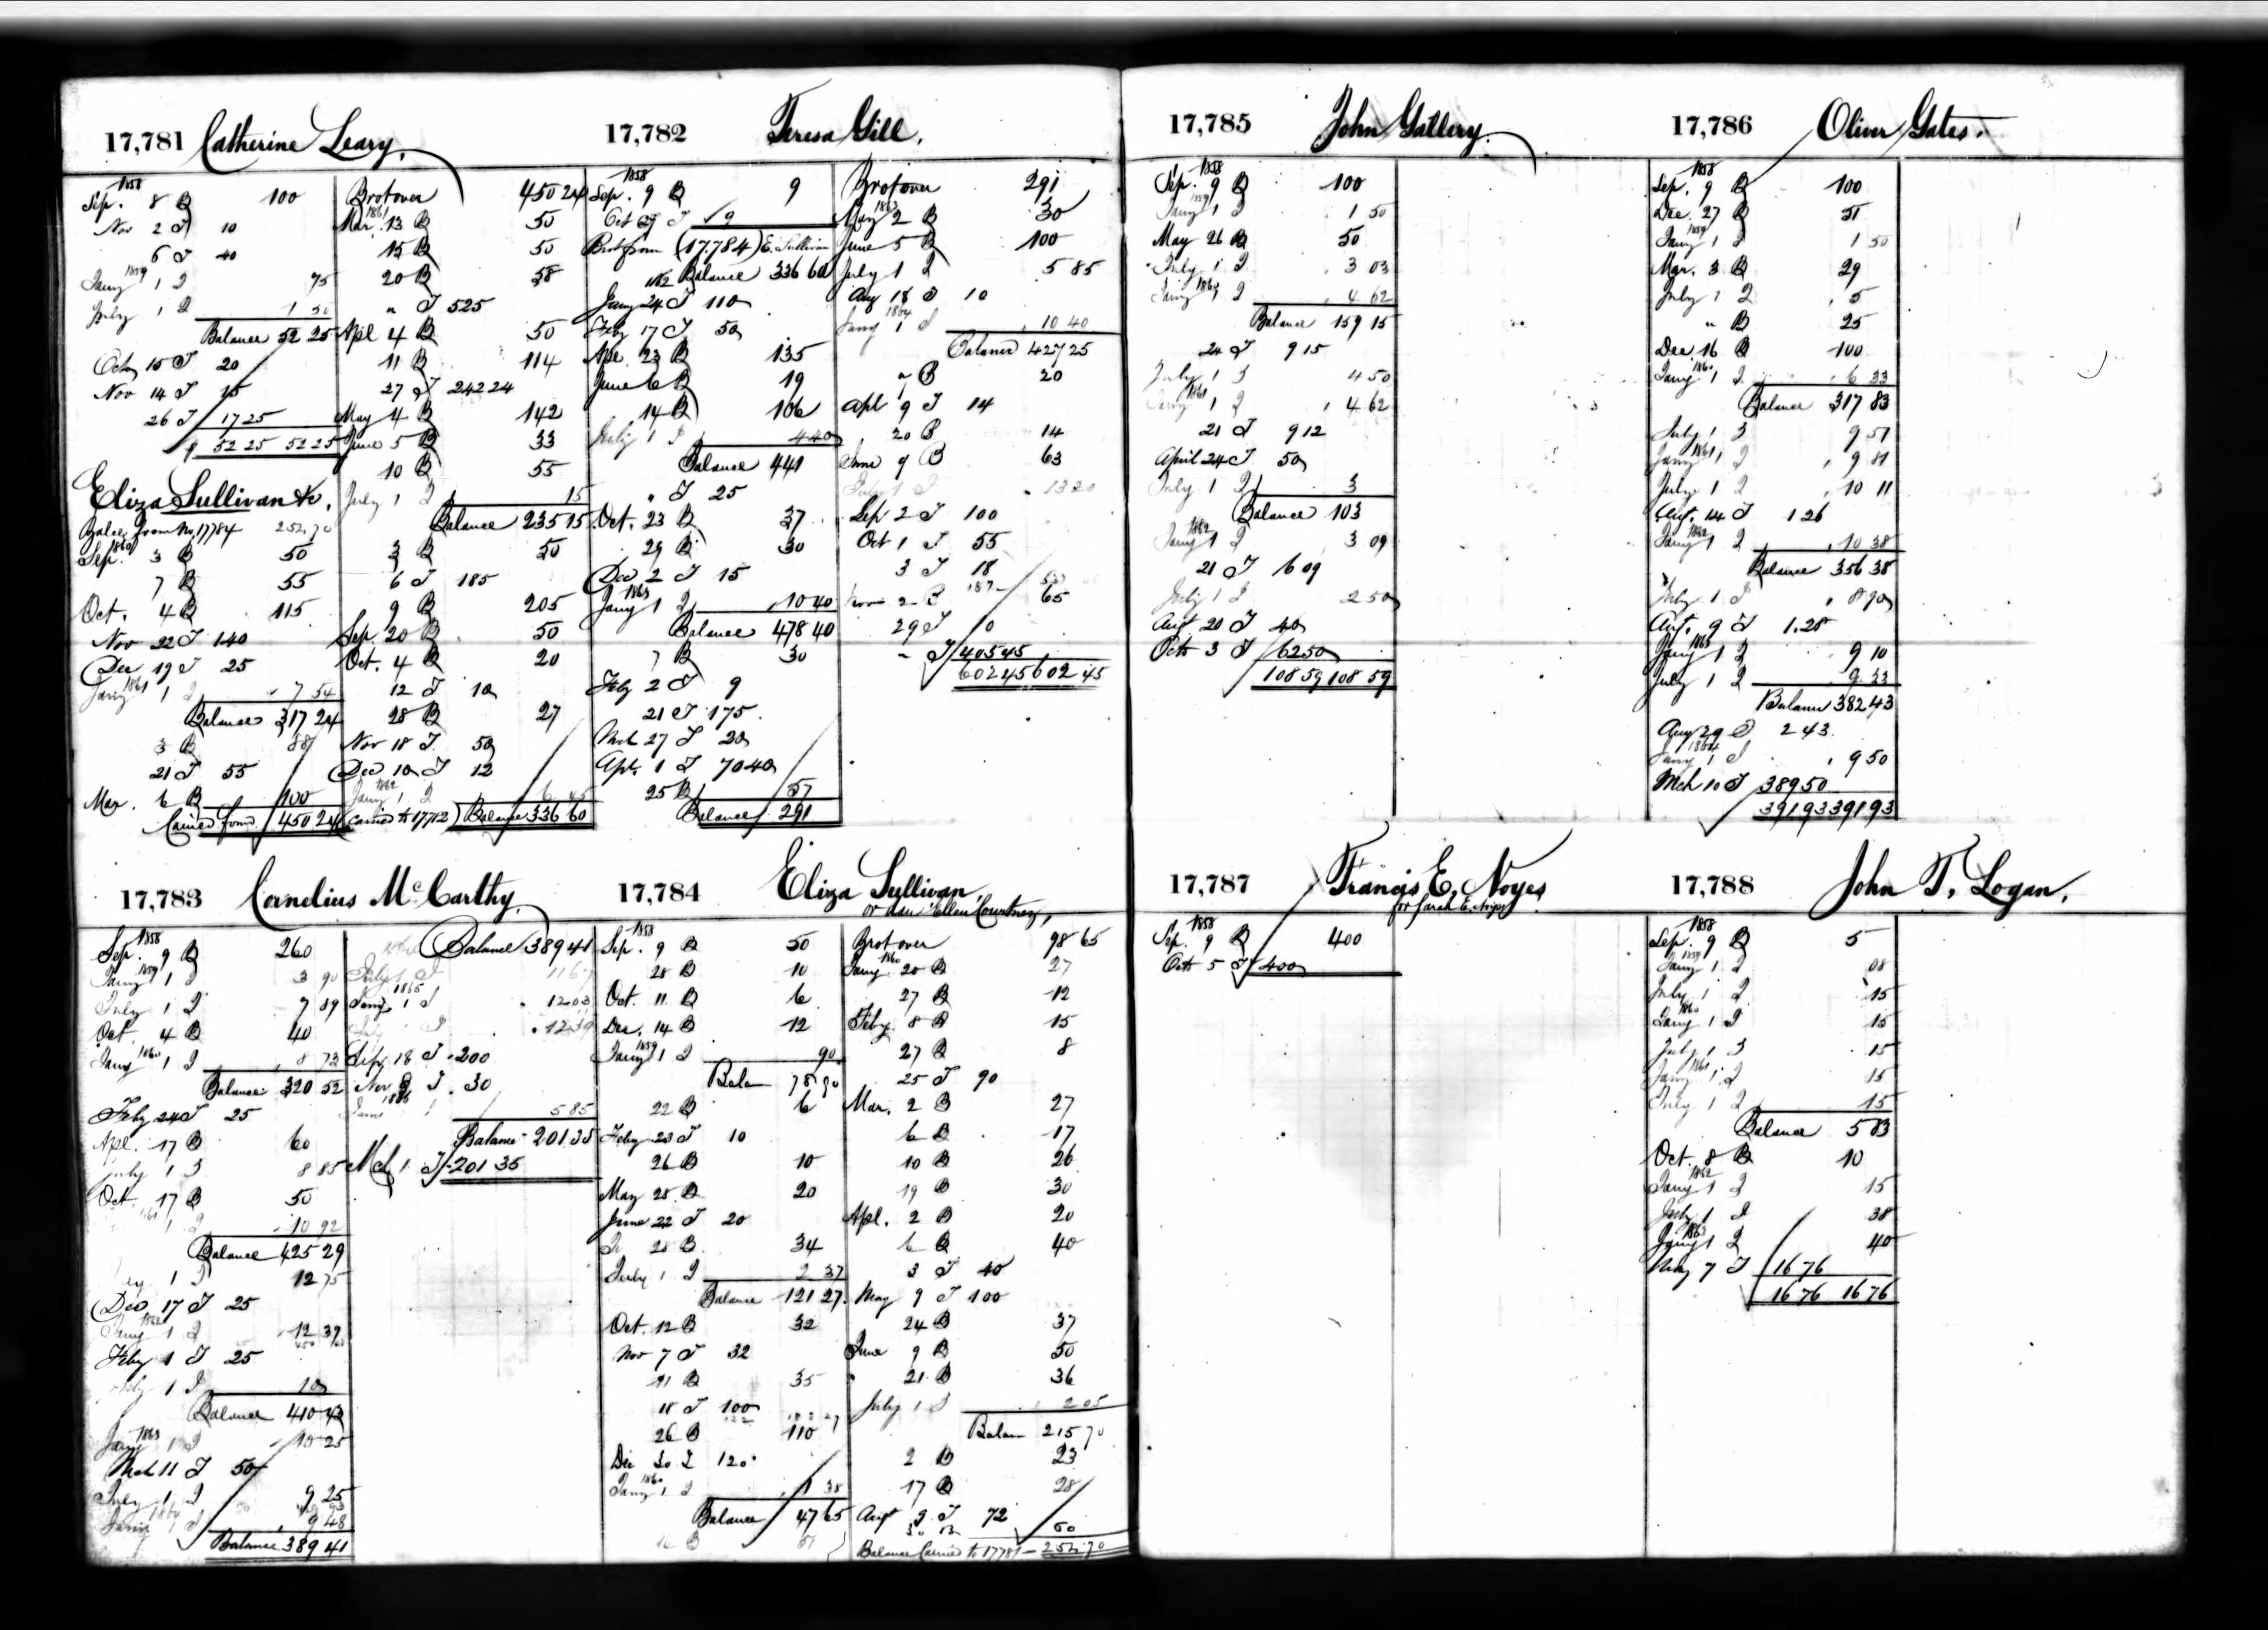 17,781 Catherine Leary.
1858
Sep. 8 B 100
Nov 2 T 10
6 T 40
1859
Jany 1 I 75
July 1 I 1 50
Balance 52 25
Octo 15 T 20
Nov 14 T 15
26 T 17 25
52 25 52 25
Eliza Sullivan &c.
Balce from No. 17784 252.70
1860
Sep. 3 B 50
7 B 55
Oct. 4 B 115
Nov 22 T 140
Dec 19 T 25
1861
Jany 1 I 7 54
Balance 317 24
3 B 88
21 T 55
Mar. 6 B 100
Carried forwd 450 24
Brot over 450 24
1861
Mar. 13 B 50
15 B 50
20 B 58
" T 525
Apl 4 B 50
11 B 114
27 T 242 24
May 4 B 142
June 5 B 33
10 B 55
July 1 I 15
Balance 235 15
3 B 50
6 T 185
9 B 205
Sep. 20 B 50
Oct. 4 B 20
12 T 10
28 B 27
Nov 18 T 50
Dec 10 T 12
1862
Jany 1 I 6 45
(Carried to 17782) Balance 336 60
17,782 Teresa Gill.
1858
Sep. 9 B 9
Oct 27 T 9
Brot from (17.784) E. Sullivan
1862 Balance 336 60
Jany 24 T 110
Feby 17 T 50
Apl. 23 B 135
June 6 B 19
14 B 106
July 1 I 4 40
Balance 441
" T 25
Oct. 23 B 37
29 B 30
Dec 2 T 15
1863
Jany 1 I 10 40
Balance 478 40
7 B 30
Feby 2 T 9
21 T 175
Mch 27 T 20
Apl. 1 T 70 40
25 B 57
Balance 291
Brot over 291
1863
May 2 B 30
June 5 B 100
July 1 I 5 85
Aug 18 T 10
1864
Jany 1 I 10 40
Balance 427 25
" B 20
Apl 9 T 14
20 B 14
June 9 B 63
July 1 I 13 20
Sep 2 T 100
Oct 1 T 55
3 T 18
Nov 2 B 65
29 T 10
" T 405 45
602 45 602 45
17,783 Cornelius McCarthy.
1858
Sep. 9 B 260
1859
Jany 1 I 3 90
July 1 I 7 89
Oct. 4 B 40
1860
Jany 1 I 8 73
Balance 320 52
Feby 24 T 25
Apl. 17 B 60
July 1 I 8 85
Oct. 17 B 50
1861
1 I 10 92
Balance 425 29
1 I 12 75
Dec 17 T 25
1862
Jany 1 I 12 39
Feby 1 T 25
July 1 I 10
Balance 410 43
1863
Jany 1 I 10 25
Mch 11 T 50
July 1 I 9 25
1864
Jany I 9 48
Balance 389 41
Balance 389 41
July 1 I 11 67
1865
Jany 1 I 12 03
I 12 39
Sep. 18 T 200
Nov 8 T 30
1866
Jany 1 5 85
Balance 201 35
Mch 1 T 201 35
17,784 Eliza Sullivan,
or dau 'Ellen Courtney,
1858
Sep. 9 B 50
28 B 10
Oct. 11 B 6
Dec. 14 B 12
1859
Jany 1 I 90
Balan 78 90
22 B 6
Feby 23 T 10
26 B 10
May 28 B 20
June 22 T 20
28 B 34
July 1 I 2 37
Balance 121 27
Oct. 12 B 32
Nov 7 T 32
11 B 35
18 T 100
26 B 110
Dec 30 T 120
1860
Jany 1 I 1 38
Balance 47 65
16 B 51
Brot over 98 65
1860
Jany. 20 B 27
27 B 12
Feby. 8 B 15
27 B 8
25 T 90
Mar. 2 B 27
6 B 17
10 B 26
19 B 30
Apl. 2 B 20
6 B 40
3 T 40
May 9 T 100
24 B 37
June 9 B 50
21 B 36
July 1 I 2 05
Balan 215 70
2 B 23
17 B 28
Augt 9 T 72
30 B 60
Balance Carried to 17781 — 252.70
17,785 John Gallery.
1858
Sep. 9 B 100
1859
Jany 1 I 1 50
May 26 B 50
July 1 I 3 03
1860
Jany 1 I 4 62
Balance 159 15
24 T 9 15
July 1 I 4 50
1861
Jany 1 I 4 62
21 T 9 12
April 24 T 50
July 1 I 3
Balance 103
1862
Jany 1 I 3 09
21 T 6 09
July 1 I 2 50
Augt 20 T 40
Octo 3 T 62 50
108 59 108 59
17,786 Oliver Gates.
1858
Sep. 9 B 100
Dec. 27 B 51
1859
Jany 1 I 1 50
Mar. 3 B 29
July 1 I 5
" B 25
Dec. 16 B 100
1860
Jany 1 I 6 33
Balance 317 83
July 1 I 9 51
1861
Jany 1 I 9 81
July 1 I 10 11
Augt. 14 T 1 26
1862
Jany 1 I 10 38
Balance 356 38
July 1 I 8 90
Augt. 9 T 1.28
1863
Jany 1 I 9 10
July 1 I 9 33
Balance 382 43
Aug 29 T 2 43
1864
Jany 1 I 9 50
Mch 10 T 389 50
391 93 391 93
17,787 Francis E. Noyes
or Sarah E. Noyes
1858
Sep. 9 B 400
Octo 5 T 400
17,788 John T. Logan.
1858
Sep. 9 B 5
1859
Jany 1 I 08
July 1 I 15
1860
Jany 1 I 15
July 1 I 15
1861
Jany 1 I 15
July 1 I 15
Balance 5 83
Oct. 8 B 10
1862
Jany 1 I 15
July 1 I 38
1863
Jany 1 I 40
May 7 T 16 76
16 76 16 76